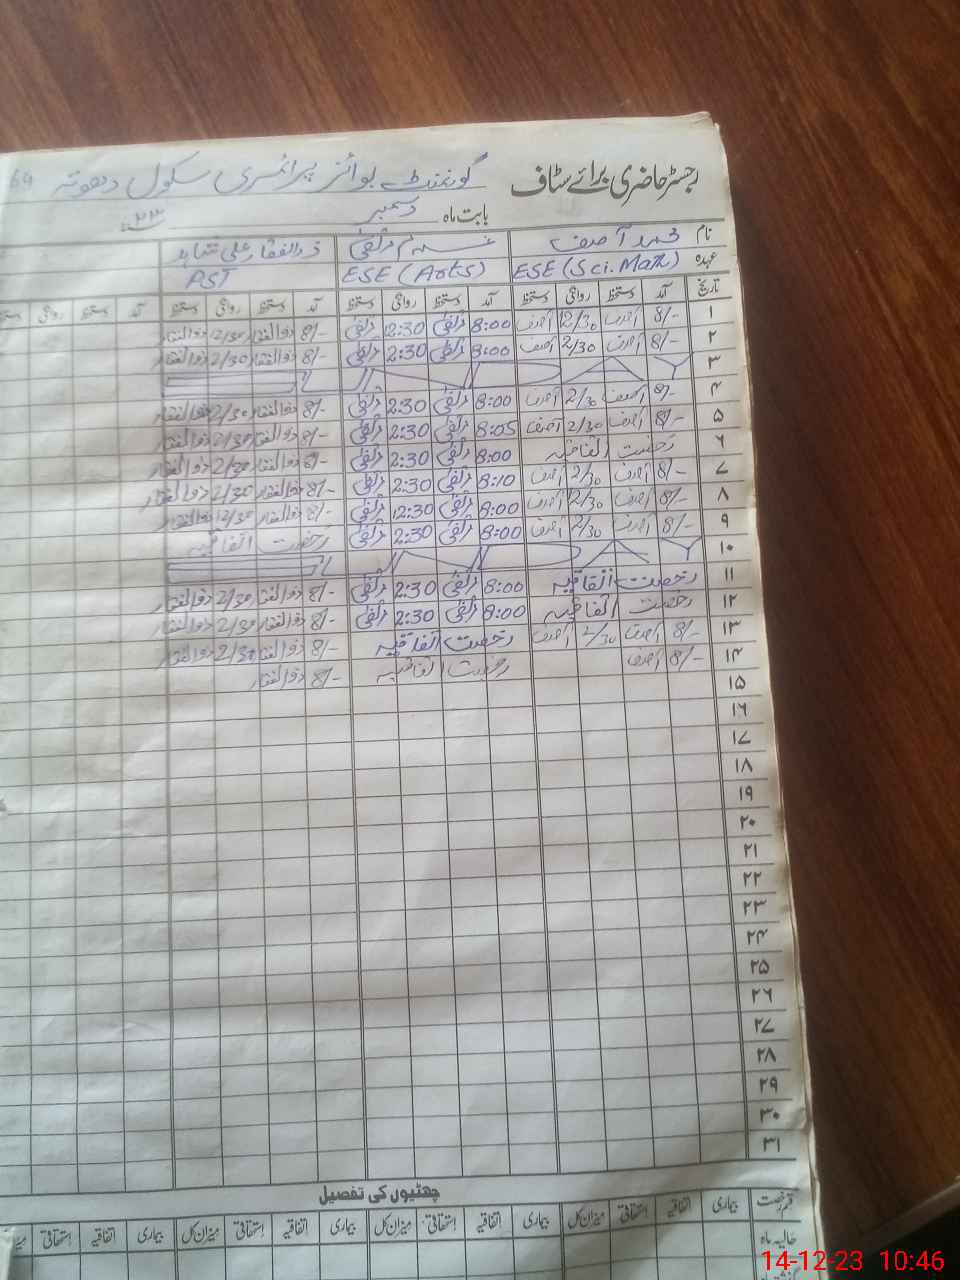 رجسٹر حاضری برائے سٹاف گورنمنٹ بوائز پرائمری سکول دھوتہ 64
بابت ماہ دسمبر ۲۰۲۳
نام محمد آصف غلام مرتضیٰ ذوالفقار علی شاہد
عہدہ ESE (Sci. Math) ESE (Arts) PST
تاریخ آمد دستخط روانگی دستخط آمد دستخط روانگی دستخط آمد دستخط روانگی دستخط آمد دستخط روانگی دستخط
۱ 8/- آصف 12/30 آصف 8:00 مرتضیٰ 12:30 مرتضیٰ 8/- ذوالفقار 12/30 ذوالفقار
۲ 8/- آصف 2/30 آصف 8:00 مرتضیٰ 2:30 مرتضیٰ 8/- ذوالفقار 2/30 ذوالفقار
۳
۴ 8/- آصف 2/30 آصف 8:00 مرتضیٰ 2:30 مرتضیٰ 8/- ذوالفقار 2/30 ذوالفقار
۵ 8/- آصف 2/30 آصف 8:05 مرتضیٰ 2:30 مرتضیٰ 8/- ذوالفقار 2/30 ذوالفقار
۶ رخصت اتفاقیہ 8:00 مرتضیٰ 2:30 مرتضیٰ 8/- ذوالفقار 2/30 ذوالفقار
۷ 8/- آصف 2/30 آصف 8:10 مرتضیٰ 2:30 مرتضیٰ 8/- ذوالفقار 2/30 ذوالفقار
۸ 8/- آصف 12/30 آصف 8:00 مرتضیٰ 12:30 مرتضیٰ 8/- ذوالفقار 12/30 ذوالفقار
۹ 8/- آصف 2/30 آصف 8:00 مرتضیٰ 2:30 مرتضیٰ رخصت اتفاقیہ
۱۰
۱۱ رخصت اتفاقیہ 8:00 مرتضیٰ 2:30 مرتضیٰ 8/- ذوالفقار 2/30 ذوالفقار
۱۲ رخصت اتفاقیہ 8:00 مرتضیٰ 2:30 مرتضیٰ 8/- ذوالفقار 2/30 ذوالفقار
۱۳ 8/- آصف 2/30 آصف رخصت اتفاقیہ 8/- ذوالفقار 2/30 ذوالفقار
۱۴ 8/- آصف رخصت اتفاقیہ 8/- ذوالفقار
۱۵
۱۶
۱۷
۱۸
۱۹
۲۰
۲۱
۲۲
۲۳
۲۴
۲۵
۲۶
۲۷
۲۸
۲۹
۳۰
۳۱
چھٹیوں کی تفصیل
قسم رخصت بیماری اتفاقیہ استحقاقی میزان کل بیماری اتفاقیہ استحقاقی میزان کل بیماری اتفاقیہ استحقاقی میزان کل بیماری اتفاقیہ استحقاقی
حالیہ ماہ
14-12-23 10:46